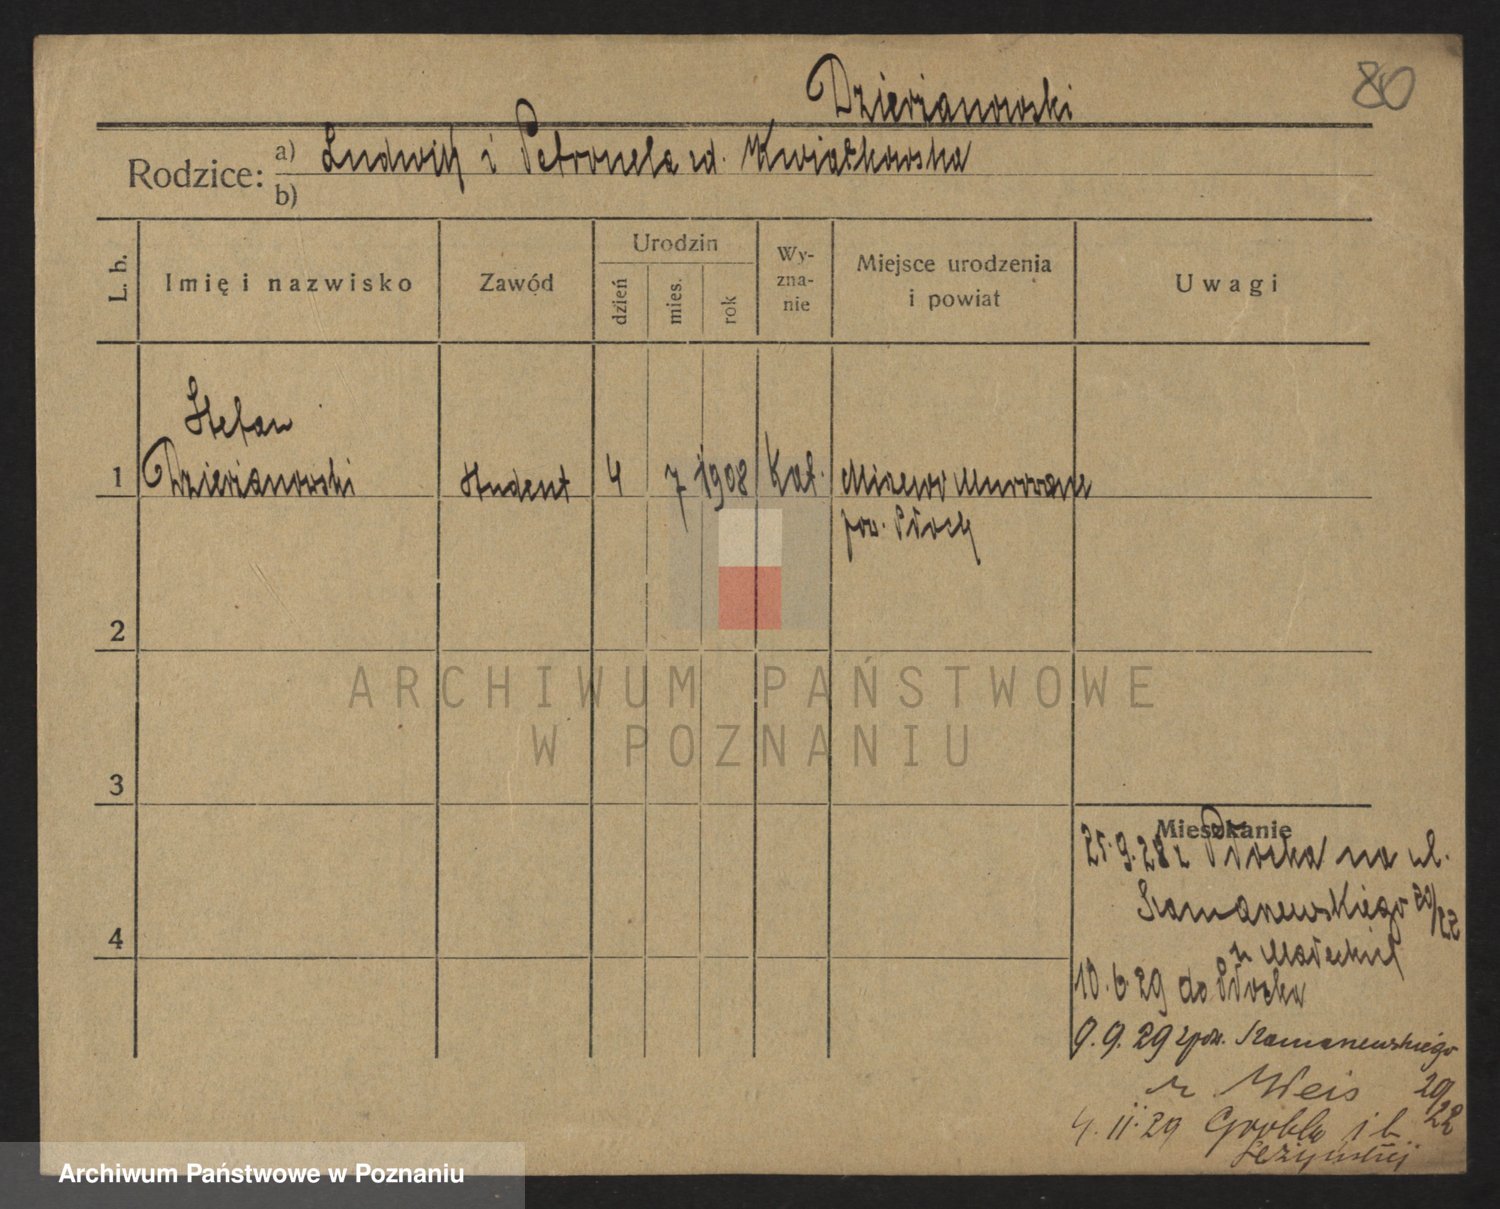 80
Dzierżanowski
Rodzice: a) Ludwik i Petronela zd. Kwiatkowska
b)
L. b.
Imię i nazwisko
Zawód
Urodzin
dzień
mies.
rok
Wy-
zna-
nie
Miejsce urodzenia
i powiat
Uwagi
Stefan
1 Dzierżanowski student 4 7 1908 kat. Miszewo Murowane
pow. Płock
2
3
4
Mieszkanie
25.9.28 z Płocka na ul.
Szamarzewskiego 20/22
u Małeckich
10.6.29 do Płocka
9.9.29 Szamarzewskiego
u Weis 20/22
4.11.29 Grobla 1 b
ARCHIWUM PAŃSTWOWE
W POZNANIU
Archiwum Państwowe w Poznaniu